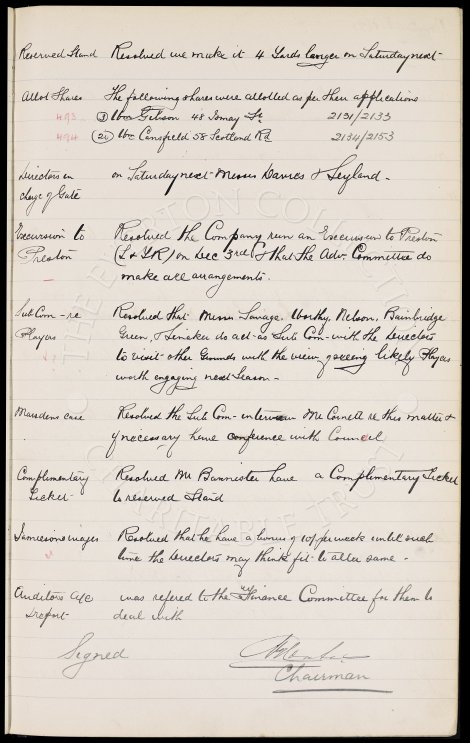 Reserved Stand Resolved we make it 4 Yards longer on Saturday next
Allot Shares The following shares were allotted as per their applications
493 (3) Wm Gilson 48 Tomay St 2131/2133
494 (20) Wm Cansfield 58 Scotland Rd 2134/2153
Directors in on Saturday next Messrs Davies & Leyland.
charge of Gate
Excursion to Resolved the Company run an Excursion to Preston
Preston (L & YR) on Dec 3rd & that the Adv. Committee do
make all arrangements.
Sub Com - re Resolved that Messrs Savage, Worthy, Nelson, Bainbridge
Players Green, & Lineker do act as Sub Com - with the Directors
to visit other Grounds with the view of seeing likely Players
worth engaging next Season -
Marsdens case Resolved the Sub Com - interview Mr Cornett re this matter &
if necessary have conference with Council
Complimentary Resolved Mr Bannister have a Complimentary Ticket
Ticket to reserved Stand
Jamiesons wages Resolved that he have a bonus of 10/ per week until such
time the Directors may think fit to alter same -
Auditors a/c was refered to the Finance Committee for them to
& report deal with
Signed
Chairman
THE EVERTON COLLECTION
CHARITABLE TRUST